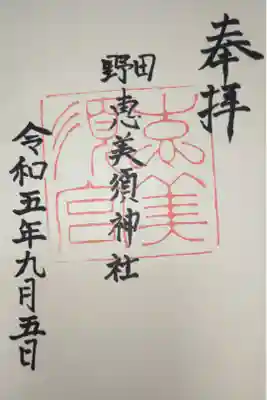 奉拝
野田
恵美須神社
令和五年九月五日